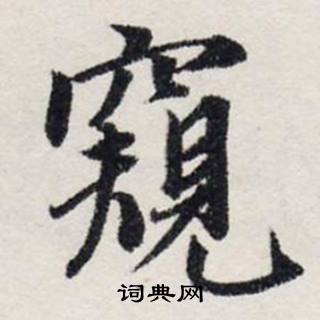 窺
词典网